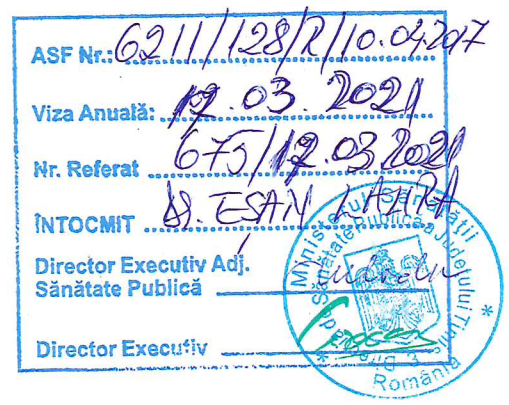 ASF Nr.: 6211/128/R/10.04.2017
Viza Anuală: 12.03.2021
Nr. Referat 675/12.03.2021
ÎNTOCMIT ESAN LAURA
Director Executiv Adj.
Sănătate Publică
Director Executiv
Ministerul Sănătăţii
Sănătate Publică a Judeţului
România